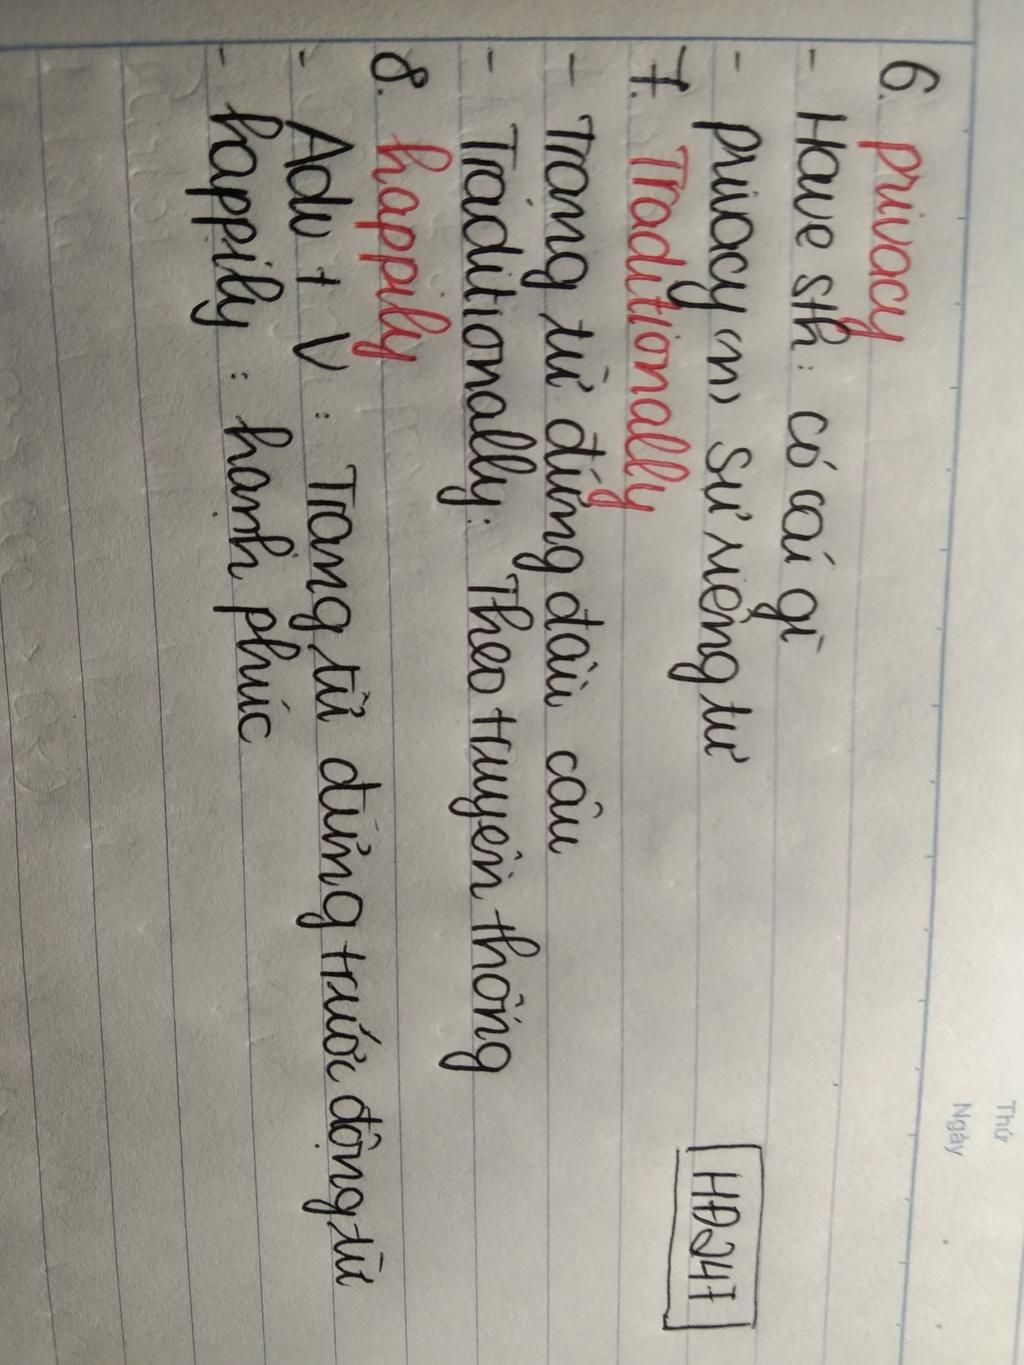 Thứ
Ngày
6. privacy
- Have sth: có cái gì
- privacy (n) sự riêng tư
7. Traditionally
- Trạng từ đứng đầu câu
- Traditionally: Theo truyền thống
8. happily
- Adv + V: Trạng từ đứng trước động từ
- happily: hạnh phúc
HĐ247